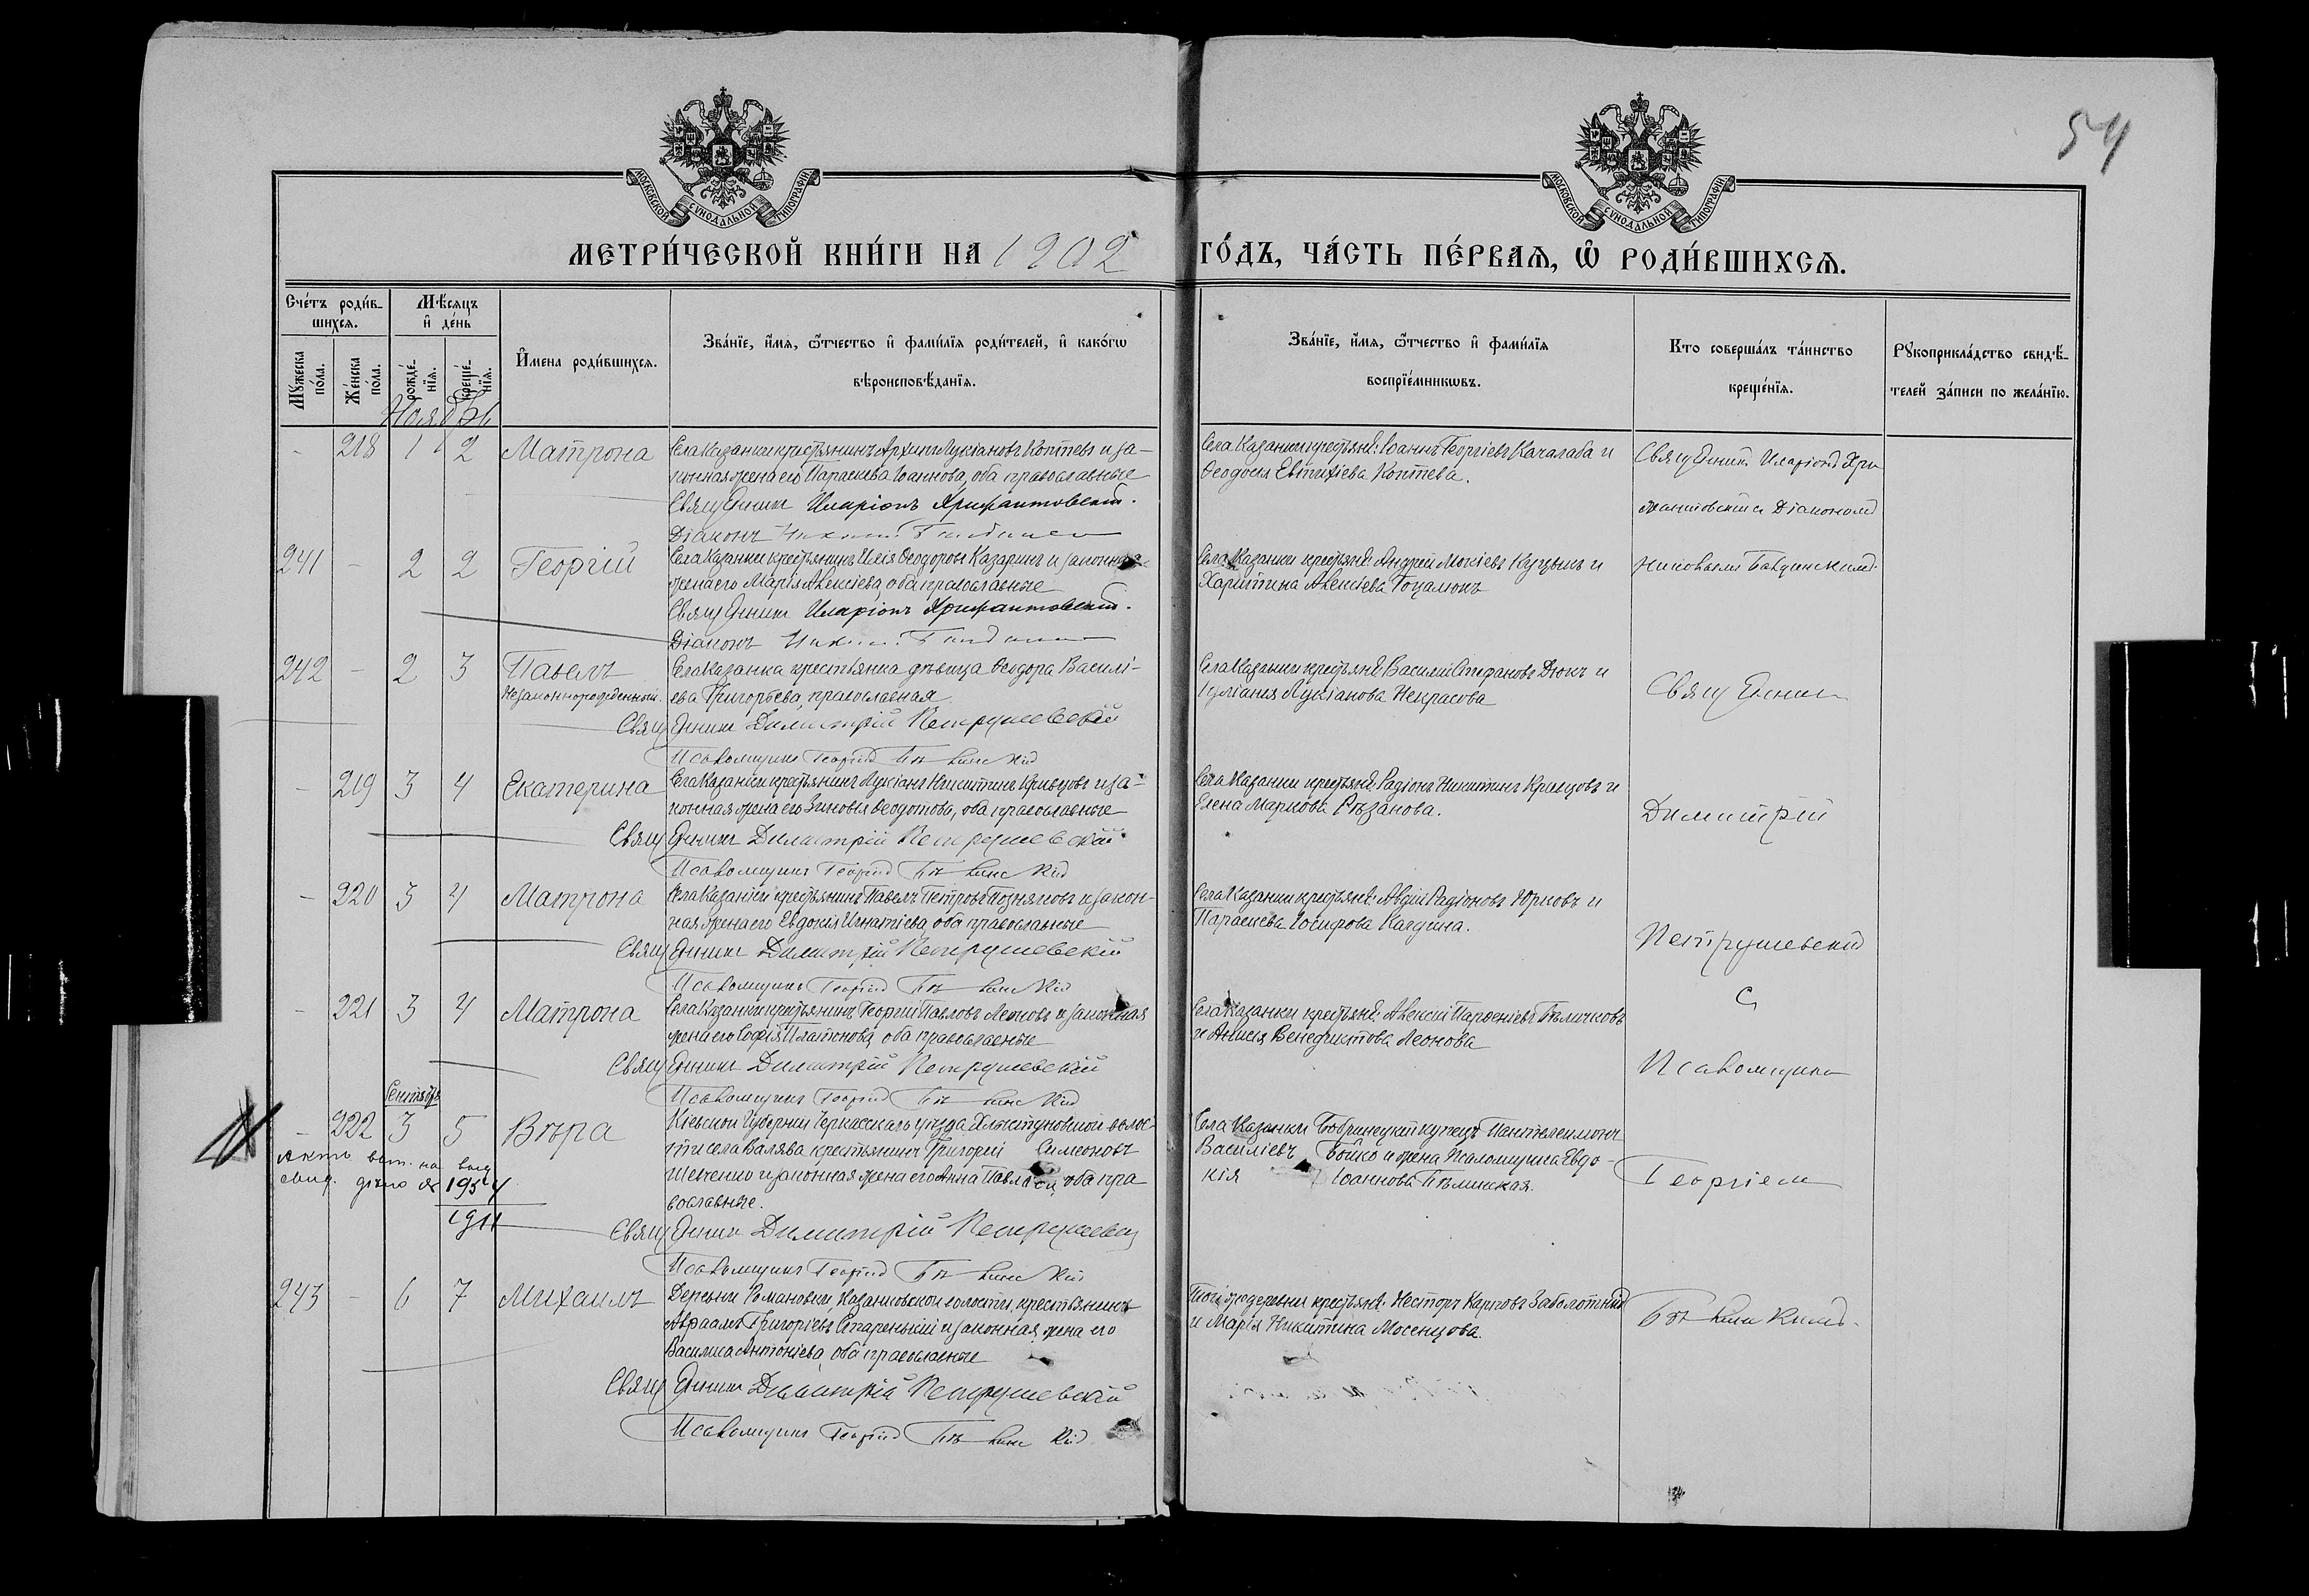 54
МОСКОВСКОЙ СѴНОДАЛЬНОЙ ТИПОГРАФІИ
МОСКОВСКОЙ СѴНОДАЛЬНОЙ ТИПОГРАФІИ
МЕТРИ́ЧЕСКОЙ КНИ́ГИ НА 1902 ГО́ДЪ, ЧА́СТЬ ПЕ́РВАѦ, Ѡ҆ РОДИ́ВШИХСѦ.
Сче́тъ роди́в-
шихсѧ.
Мꙋ́жеска
по́ла.
Же́нска
по́ла.
Мѣ́сѧцъ
и҆ де́нь
рожде́-
нїѧ.
креще́-
нїѧ.
И҆мена роди́вшихсѧ.
Зва́нїе, и҆́мѧ, ѻ҆́тчество и҆ фами́лїѧ роди́телей, и҆ како́гѡ
вѣроисповѣ́данїѧ.
Зва́нїе, и҆́мѧ, ѻ҆́тчество и҆ фами́лїѧ
воспрїе́мникѡвъ.
Кто соверша́лъ та́инство
креще́нїѧ.
Рꙋкоприкла́дство свидѣ́-
телей за́писи по жела́нїю.
Ноябрь
- 218 1 2 Матрона
Села Казанки крестьянинъ Архипъ Лукіановъ Коптевъ и за-
конная жена его Параскева Іоаннова, оба православные
Священникъ Иларіонъ Хрисантовскій.
Діаконъ
Села Казанки крестьяне: Іоаннъ Георгіевъ Качалаба и
Ѳеодосія Евтихіева Коптева.
Священник Иларіонъ Хри
сантовскій съ Діакономъ
241 - 2 2 Георгій
Села Казанки крестьянинъ Илія Ѳеодоровъ Казаринъ и законная
жена его Марія Алексіева, оба православные
Священникъ Иларіонъ Хрисантовскій.
Діаконъ
Села Казанки крестьяне: Андрей Мокіевъ Куцынъ и
Харитина Алексіева
242 - 2 3 Павелъ
Незаконнорожденный.
Села Казанка крестьянка дѣвица Ѳеодора Василі-
ева Григорьева, православная
Священникъ Димитрій Петрушевскій
Псаломщикъ Георгій
Села Казанки крестьяне: Василій Стефановъ Дюкъ и
Іуліанія Лукіанова Некрасова
Священник
- 219 3 4 Екатерина
Села Казанки крестьянинъ Лукіанъ Никитинъ Кривцовъ и за-
конная жена его Зиновія Ѳеодотова, оба православные
Священникъ Димитрій Петрушевскій
Псаломщикъ Георгій
Села Казанки крестьяне: Радіонъ Никитинъ Кривцовъ и
Елена Маркова Рѣзанова.
Димитрій
- 220 3 4 Матрона
Села Казанки крестьянинъ Павелъ Петровъ Позняковъ и закон-
ная жена его Евдокія Игнатіева, оба православные
Священникъ Димитрій Петрушевскій
Псаломщикъ Георгій
Села Казанки крестьяне: Авдій Радіоновъ Юрковъ и
Параскева Іосифова
Петрушевскій
съ
- 221 3 4 Матрона
Села Казанки крестьянинъ Георгій Павловъ Леоновъ и законная
жена его Софія Платонова, оба православные
Священникъ Димитрій Петрушевскій
Псаломщикъ Георгій
Села Казанки крестьяне: Алексій Парѳеніевъ Бѣличковъ
и Анисія Венедиктова Леонова
Псаломщикомъ
Сентябрь
- 222 3 5 Вѣра
Актъ на
дѣло № 1954
1911
Кіевской губерніи Черкасскаго уѣзда Хлыстуновской волос-
ти села Валява крестьянинъ Григорій Симеоновъ
Шевченко и законная жена его Анна Павлова, оба пра
вославные.
Священникъ Димитрій Петрушевскій
Псаломщикъ Георгій
Села Казанки Бобринецкій купецъ Пантелеимонъ
Василіевъ Бойко и жена Псаломщика Евдо-
кія Іоаннова Бѣлинская.
Георгіемъ
243 - 6 7 Михаилъ
Деревни Романовки, Казанковской волости, крестьянинъ
Авраамъ Григоріевъ Старенькій и законная жена его
Василиса Антоніева, оба православные
Священникъ Димитрій Петрушевскій
Псаломщикъ Георгій
Той же деревни крестьяне: Несторъ Карповъ Заболотный
и Марія Никитина Мосенцова.
Бѣлинскимъ.